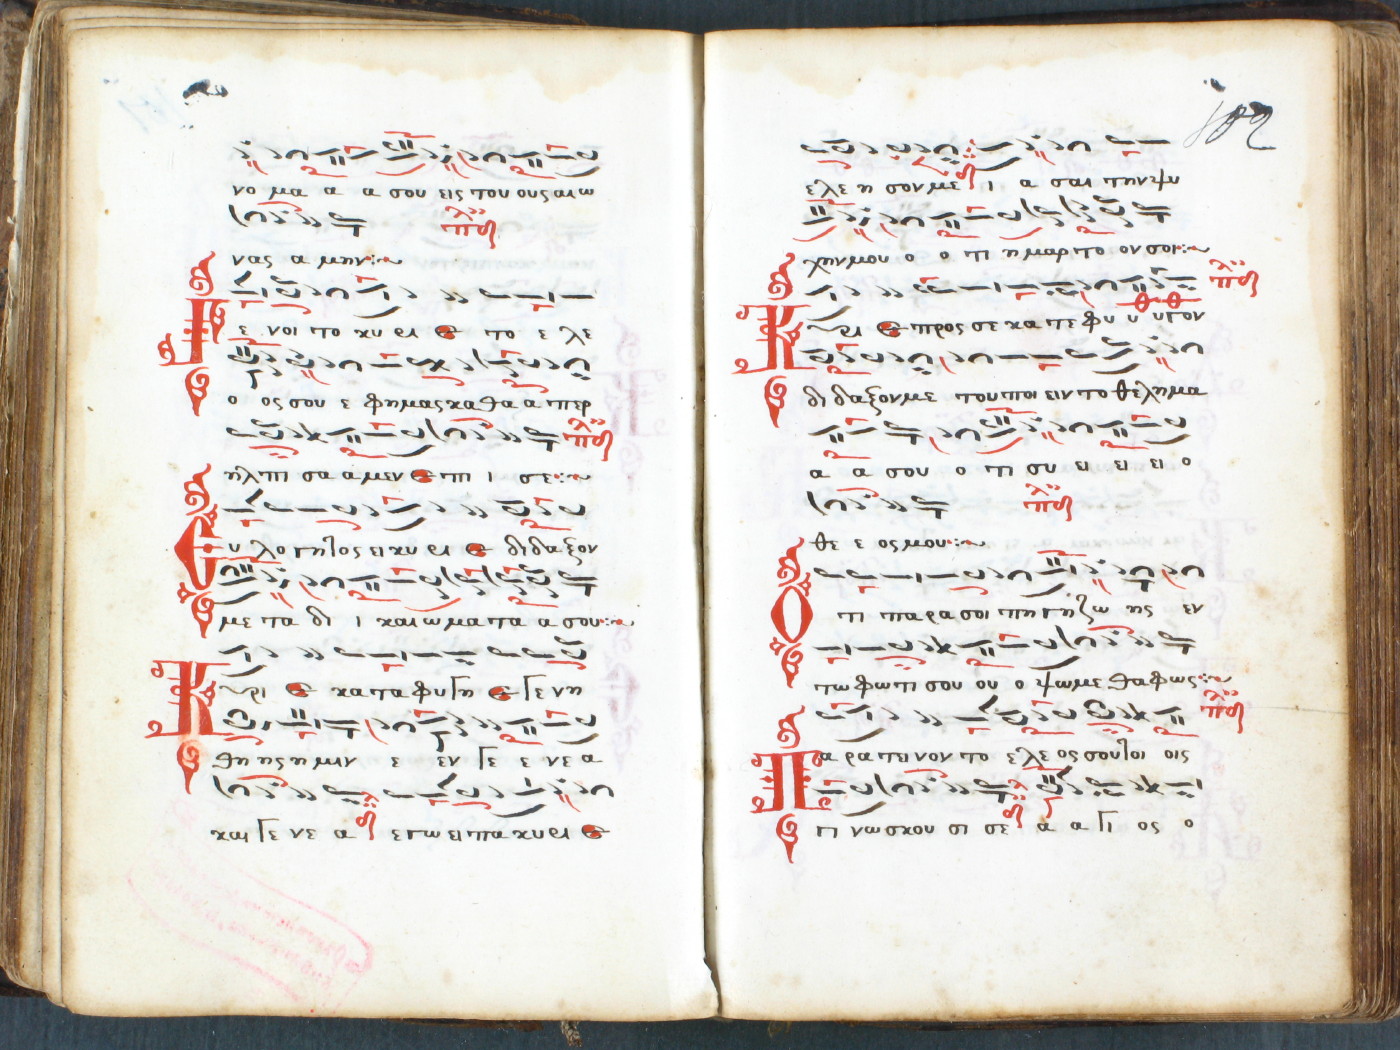 νο μα α α σου εις του ους αι ω
νας α μην:~
Γε νοι το κυ ρι ε το ε λε
ο ος σου ε φη μας κα θα α περ
ηλ πι σα α μεν ε πι ι σε:~
Ευ λο γητος ει κυ ρι ε διδαξον
με τα δι ι και ω μα τα α σου:~
Κυρι ε κα τα φυ γη ε γε νη
θη ης η μιν ε εν γε ε νε α
και γε νε α εγω ει πα κυρι ε
182
ελε η σον με ι α σαι την ψυ
χην μου ο ο τι η μαρ το ον σοι:~
Κυρι ε προς σε κα τε φυ υ υγον
δι δαξον με του ποι ειν το θελημα
α α σου ο τι συ ει ει ει ο
θε ε ος μου:~
Ο τι παρα σοι πηγη ζω ης εν
τω φωτι σου ου ο ψωμεθα φως:~
Πα ρα τει νον το ελε ος σου τοι οις
γι νωσκου σι σε α α γι ος ο